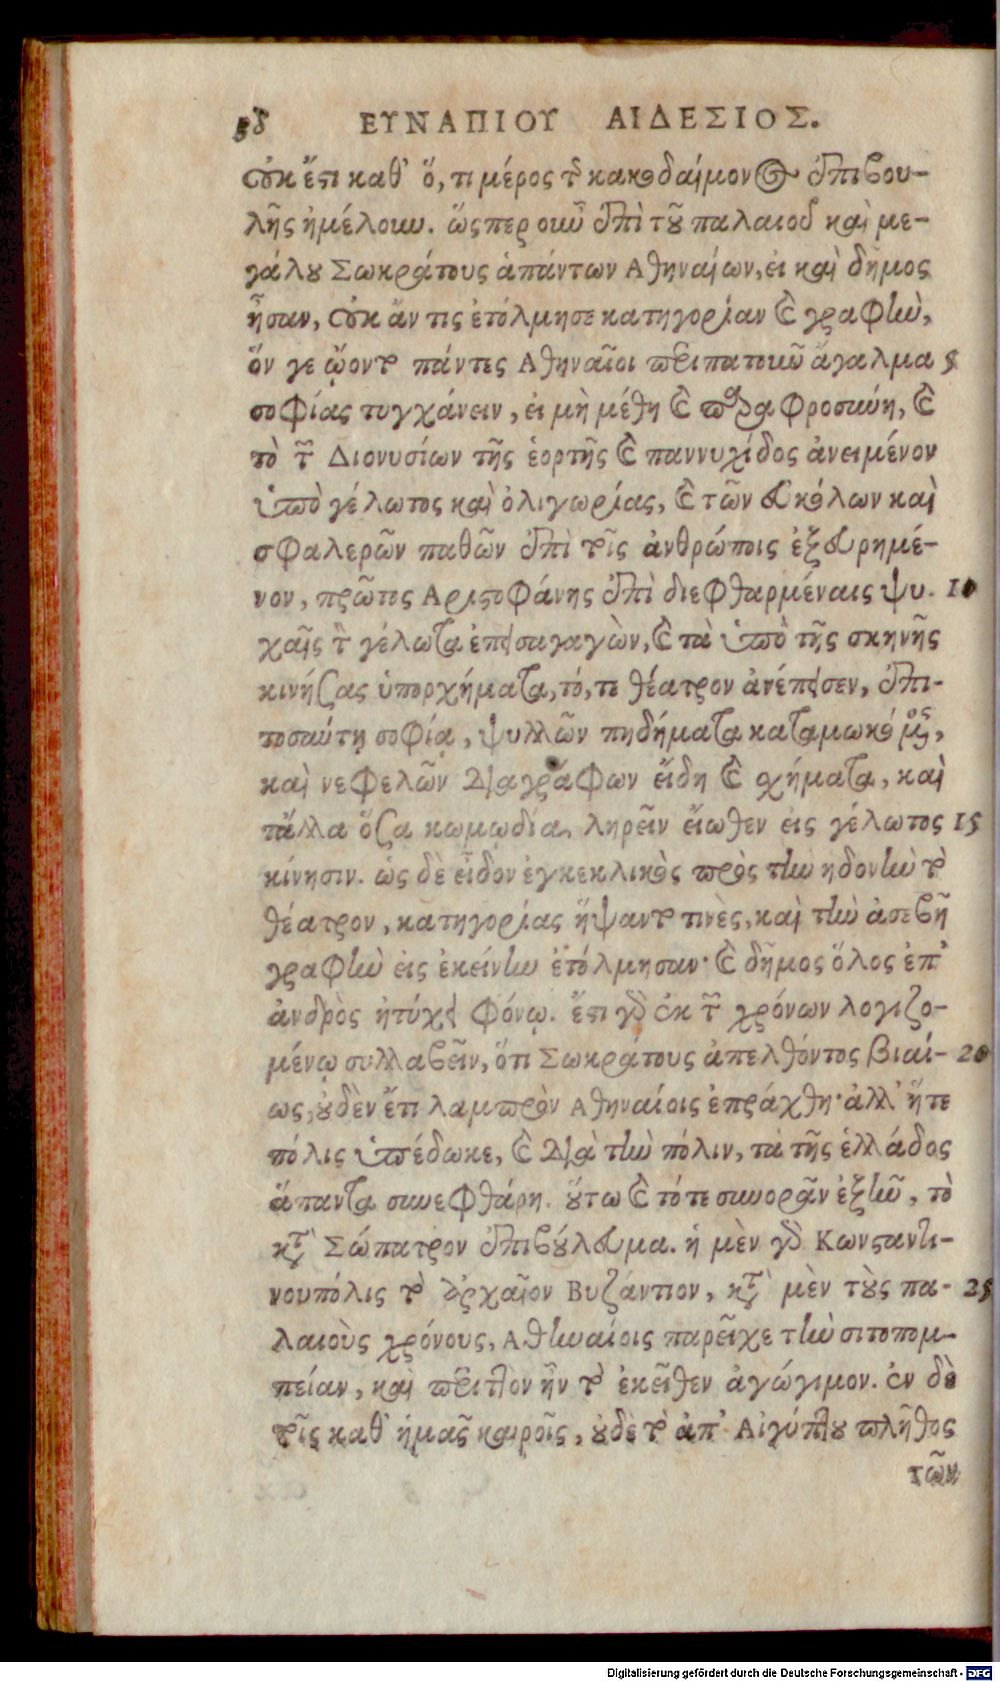 38 ΕΥΝΑΠΙΟΥ ΑΙΔΕΣΙΟΣ.
οὐκ ἔστι καθ' ὅ, τι μέρος τῆς κακοδαίμονος ἐπιβου-
λῆς ἠμέλουν. ὥσπερ οὖν ἐπὶ τοῦ παλαιοῦ καὶ με-
γάλου Σωκράτους ἁπάντων Αθηναίων, εἰ καὶ δῆμος
ἦσαν, οὐκ ἄν τις ἐτόλμησε κατηγορίαν καὶ γραφὴν,
ὅν γε ᾤοντο πάντες Αθηναῖοι περιπατοῦν ἄγαλμα 5
σοφίας τυγχάνειν, εἰ μὴ μέθῃ καὶ παραφροσύνῃ, καὶ
τὸ τῶν Διονυσίων τῆς ἑορτῆς καὶ παννυχίδος ἀνειμένον
ὑπὸ γέλωτος καὶ ὀλιγωρίας, καὶ τῶν εὐκόλων καὶ
σφαλερῶν παθῶν ἐπὶ τοῖς ἀνθρώποις ἐξευρημέ-
νον, πρῶτος Αριστοφάνης ἐπὶ διεφθαρμέναις ψυ- 10
χαῖς τὸν γέλωτα ἐπεισαγαγὼν, καὶ τὰ ὑπὸ τῆς σκηνῆς
κινήσας ὑπορχήματα, τό, τε θέατρον ἀνέπεισεν, ἐπι-
τοσαύτῃ σοφίᾳ, ψυλλῶν πηδήματα καταμωκόμενος,
καὶ νεφελῶν διαγράφων εἴδη καὶ σχήματα, καὶ
τἄλλα ὅσα κωμῳδία ληρεῖν εἴωθεν εἰς γέλωτος 15
κίνησιν. ὡς δὲ εἶδον ἐγκεκλικὸς πρὸς τὴν ηδονὴν τὸ
θέατρον, κατηγορίας ἥψαντο τινὲς, καὶ τὴν ἀσεβῆ
γραφὴν εἰς ἐκείνην ἐτόλμησαν· καὶ δῆμος ὅλος ἐπ'
ἀνδρὸς ἠτύχει φόνῳ. ἔστι γὰρ ἐκ τῶν χρόνων λογιζο-
μένῳ συλλαβεῖν, ὅτι Σωκράτους ἀπελθόντος βιαί- 20
ως, οὐδὲν ἔτι λαμπρὸν Αθηναίοις ἐπράχθη· ἀλλ' ἥτε
πόλις ὑπέδωκε, καὶ διὰ τὴν πόλιν, τὰ τῆς ἑλλάδος
ἅπαντα συνεφθάρη. οὕτω καὶ τότε συνορᾶν ἐξῆν, τὸ
κατὰ Σώπατρον ἐπιβούλευμα. ἡ μὲν γὰρ Κωνσταντι-
νουπόλις τὸ ἀρχαῖον Βυζάντιον, κατὰ μὲν τοὺς πα- 25
λαιοὺς χρόνους, Αθηναίοις παρεῖχε τὴν σιτοπομ-
πείαν, καὶ περιττὸν ἦν τὸ ἐκεῖθεν ἀγώγιμον. ἐν δὲ
τοῖς καθ' ἡμᾶς καιροῖς, οὐδὲ τὸ ἀπ' Αἰγύπτου πλῆθος
τῶν
Digitalisierung gefördert durch die Deutsche Forschungsgemeinschaft - DFG